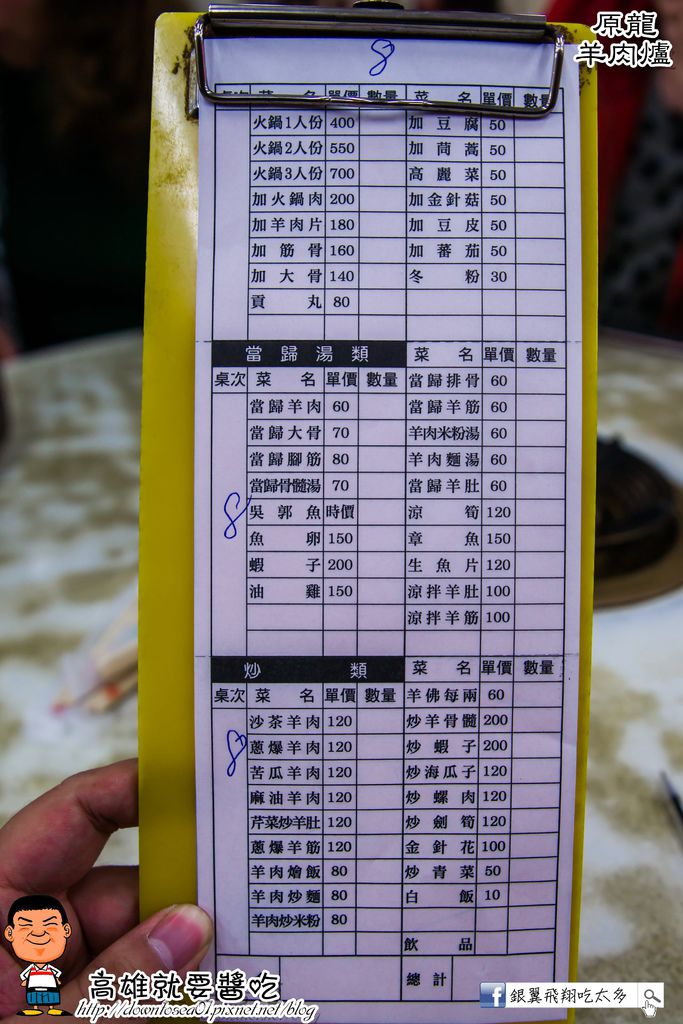 原龍
羊肉爐
8
桌次 菜名 單價 數量 菜名 單價 數量
火鍋1人份 400 加豆腐 50
火鍋2人份 550 加茼蒿 50
火鍋3人份 700 高麗菜 50
加火鍋肉 200 加金針菇 50
加羊肉片 180 加豆皮 50
加筋骨 160 加蕃茄 50
加大骨 140 冬粉 30
貢丸 80
當歸湯類 菜名 單價 數量
桌次 菜名 單價 數量 當歸排骨 60
當歸羊肉 60 當歸羊筋 60
當歸大骨 70 羊肉米粉湯 60
當歸腳筋 80 羊肉麵湯 60
當歸骨髓湯 70 當歸羊肚 60
8 吳郭魚 時價 涼筍 120
魚卵 150 章魚 150
蝦子 200 生魚片 120
油雞 150 涼拌羊肚 100
涼拌羊筋 100
炒類 菜名 單價 數量
桌次 菜名 單價 數量 羊佛每兩 60
沙茶羊肉 120 炒羊骨髓 200
8 蔥爆羊肉 120 炒蝦子 200
苦瓜羊肉 120 炒海瓜子 120
麻油羊肉 120 炒螺肉 120
芹菜炒羊肚 120 炒劍筍 120
蔥爆羊筋 120 金針花 100
羊肉燴飯 80 炒青菜 50
羊肉炒麵 80 白飯 10
羊肉炒米粉 80
飲品
總計
高雄就要醬吃
http://downtosea01.pixnet.net/blog
f 銀翼飛翔吃太多